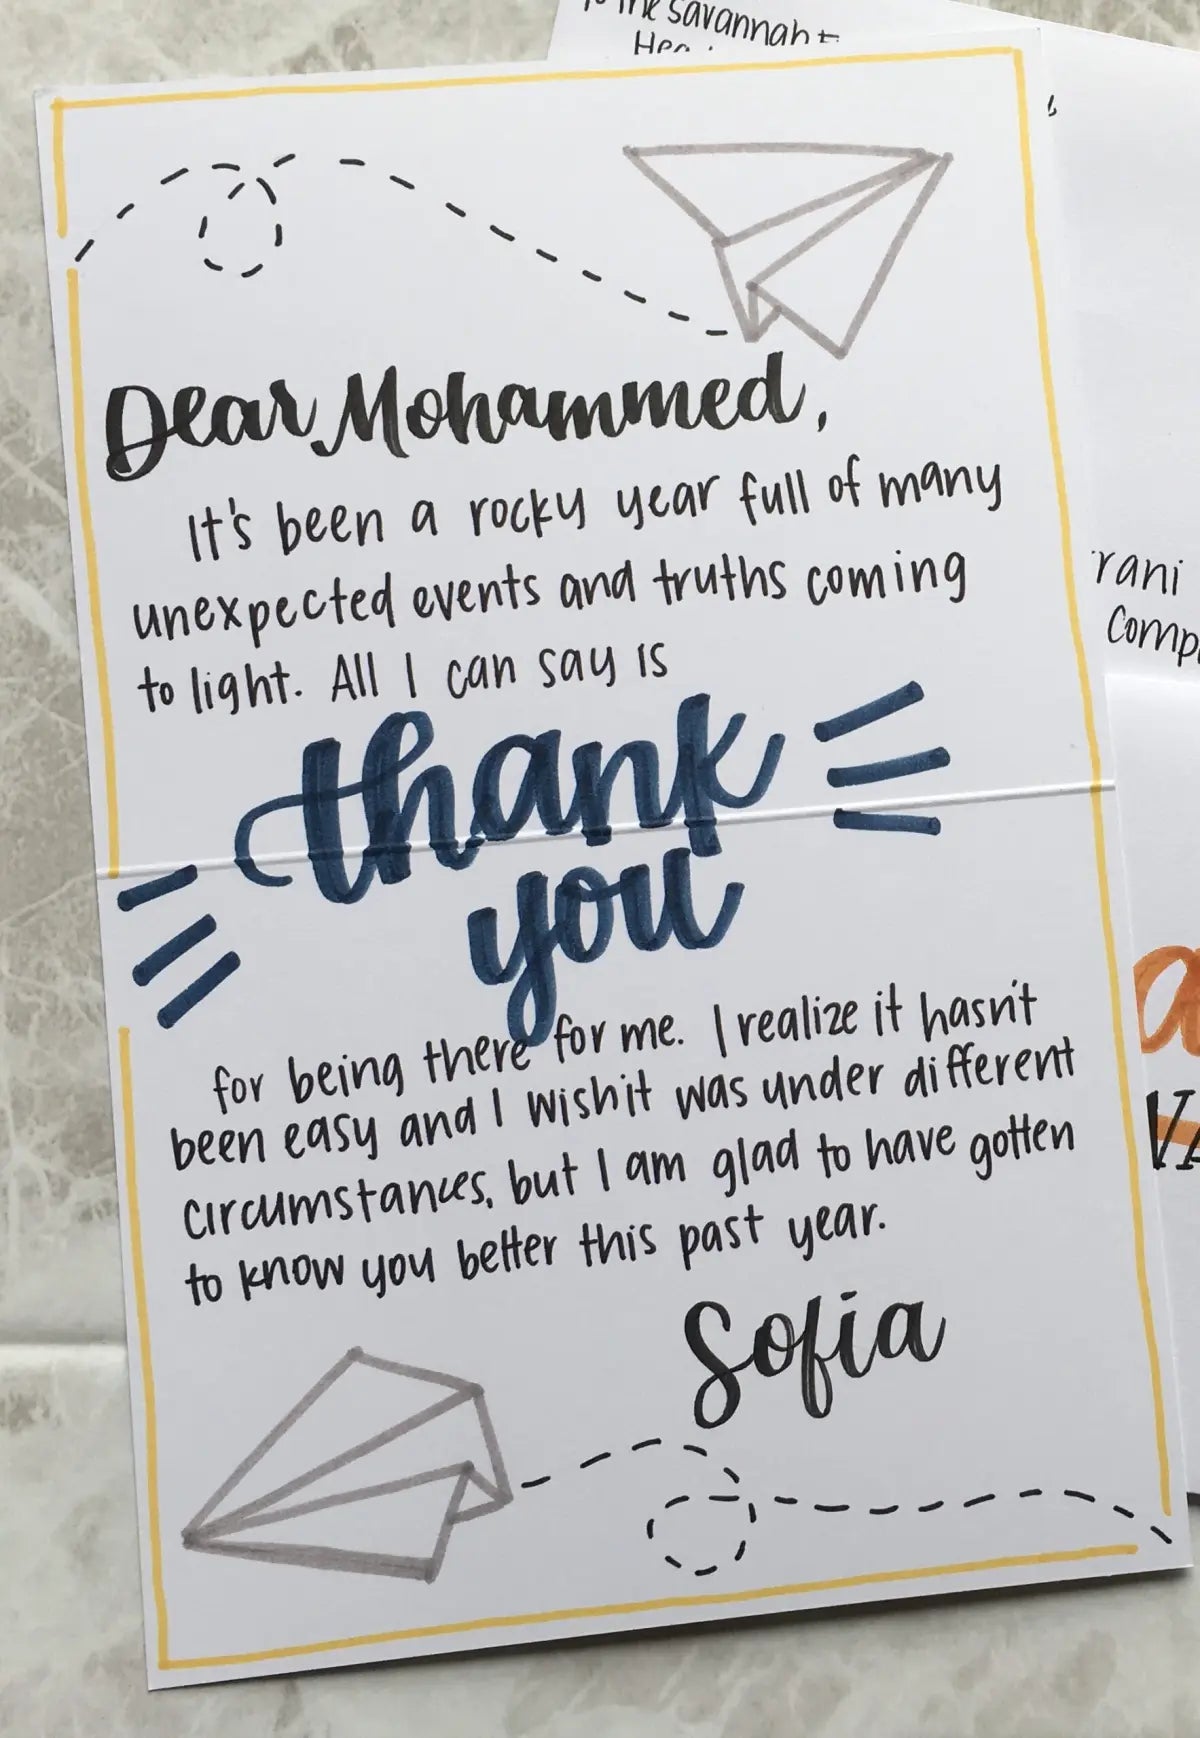 the Savannah
Dear Mohammed,
It's been a rocky year full of many
unexpected events and truths coming
to light. All I can say is
thank
you
for being there for me. I realize it hasn't
been easy and I wish it was under different
circumstances, but I am glad to have gotten
to know you better this past year.
Sofia